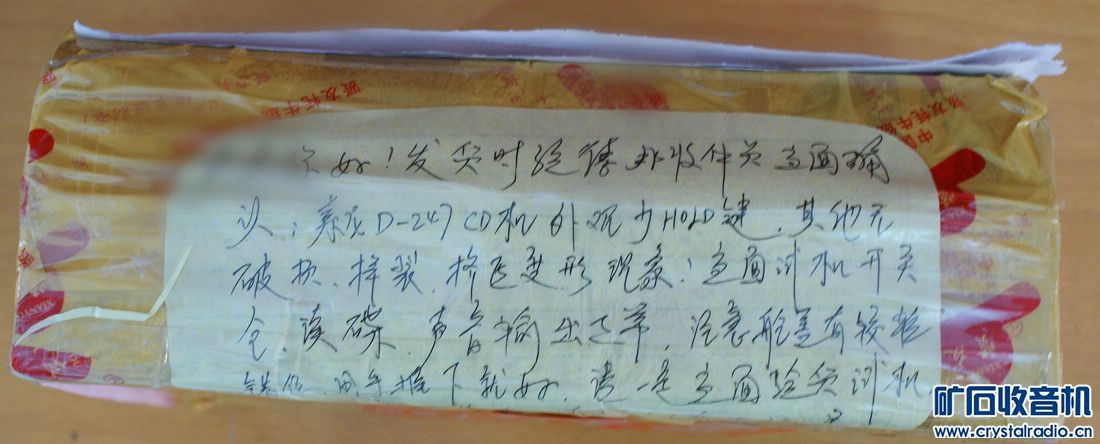 好！发货时经传外收件员当面确
认：索尼D-247CD机外观少HOLD键，其他无
破损、摔裂、挤压变形现象；当面试机开关
仓、读碟、声音输出正常，注意舱盖有较
用手 下就好，请一定当面验货试机
矿石收音机
www.crystalradio.cn